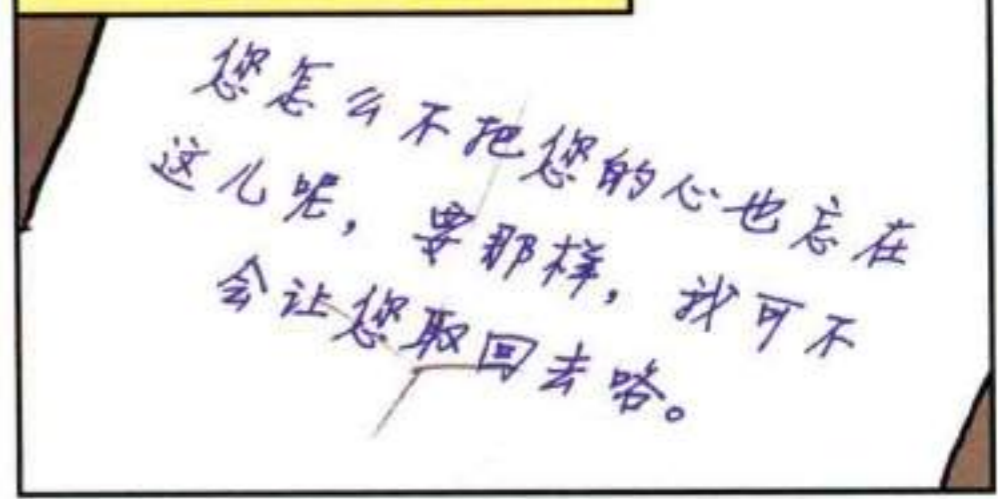 您怎么不把您的心也忘在
这儿呢，要那样，我可不
会让您取回去咯。